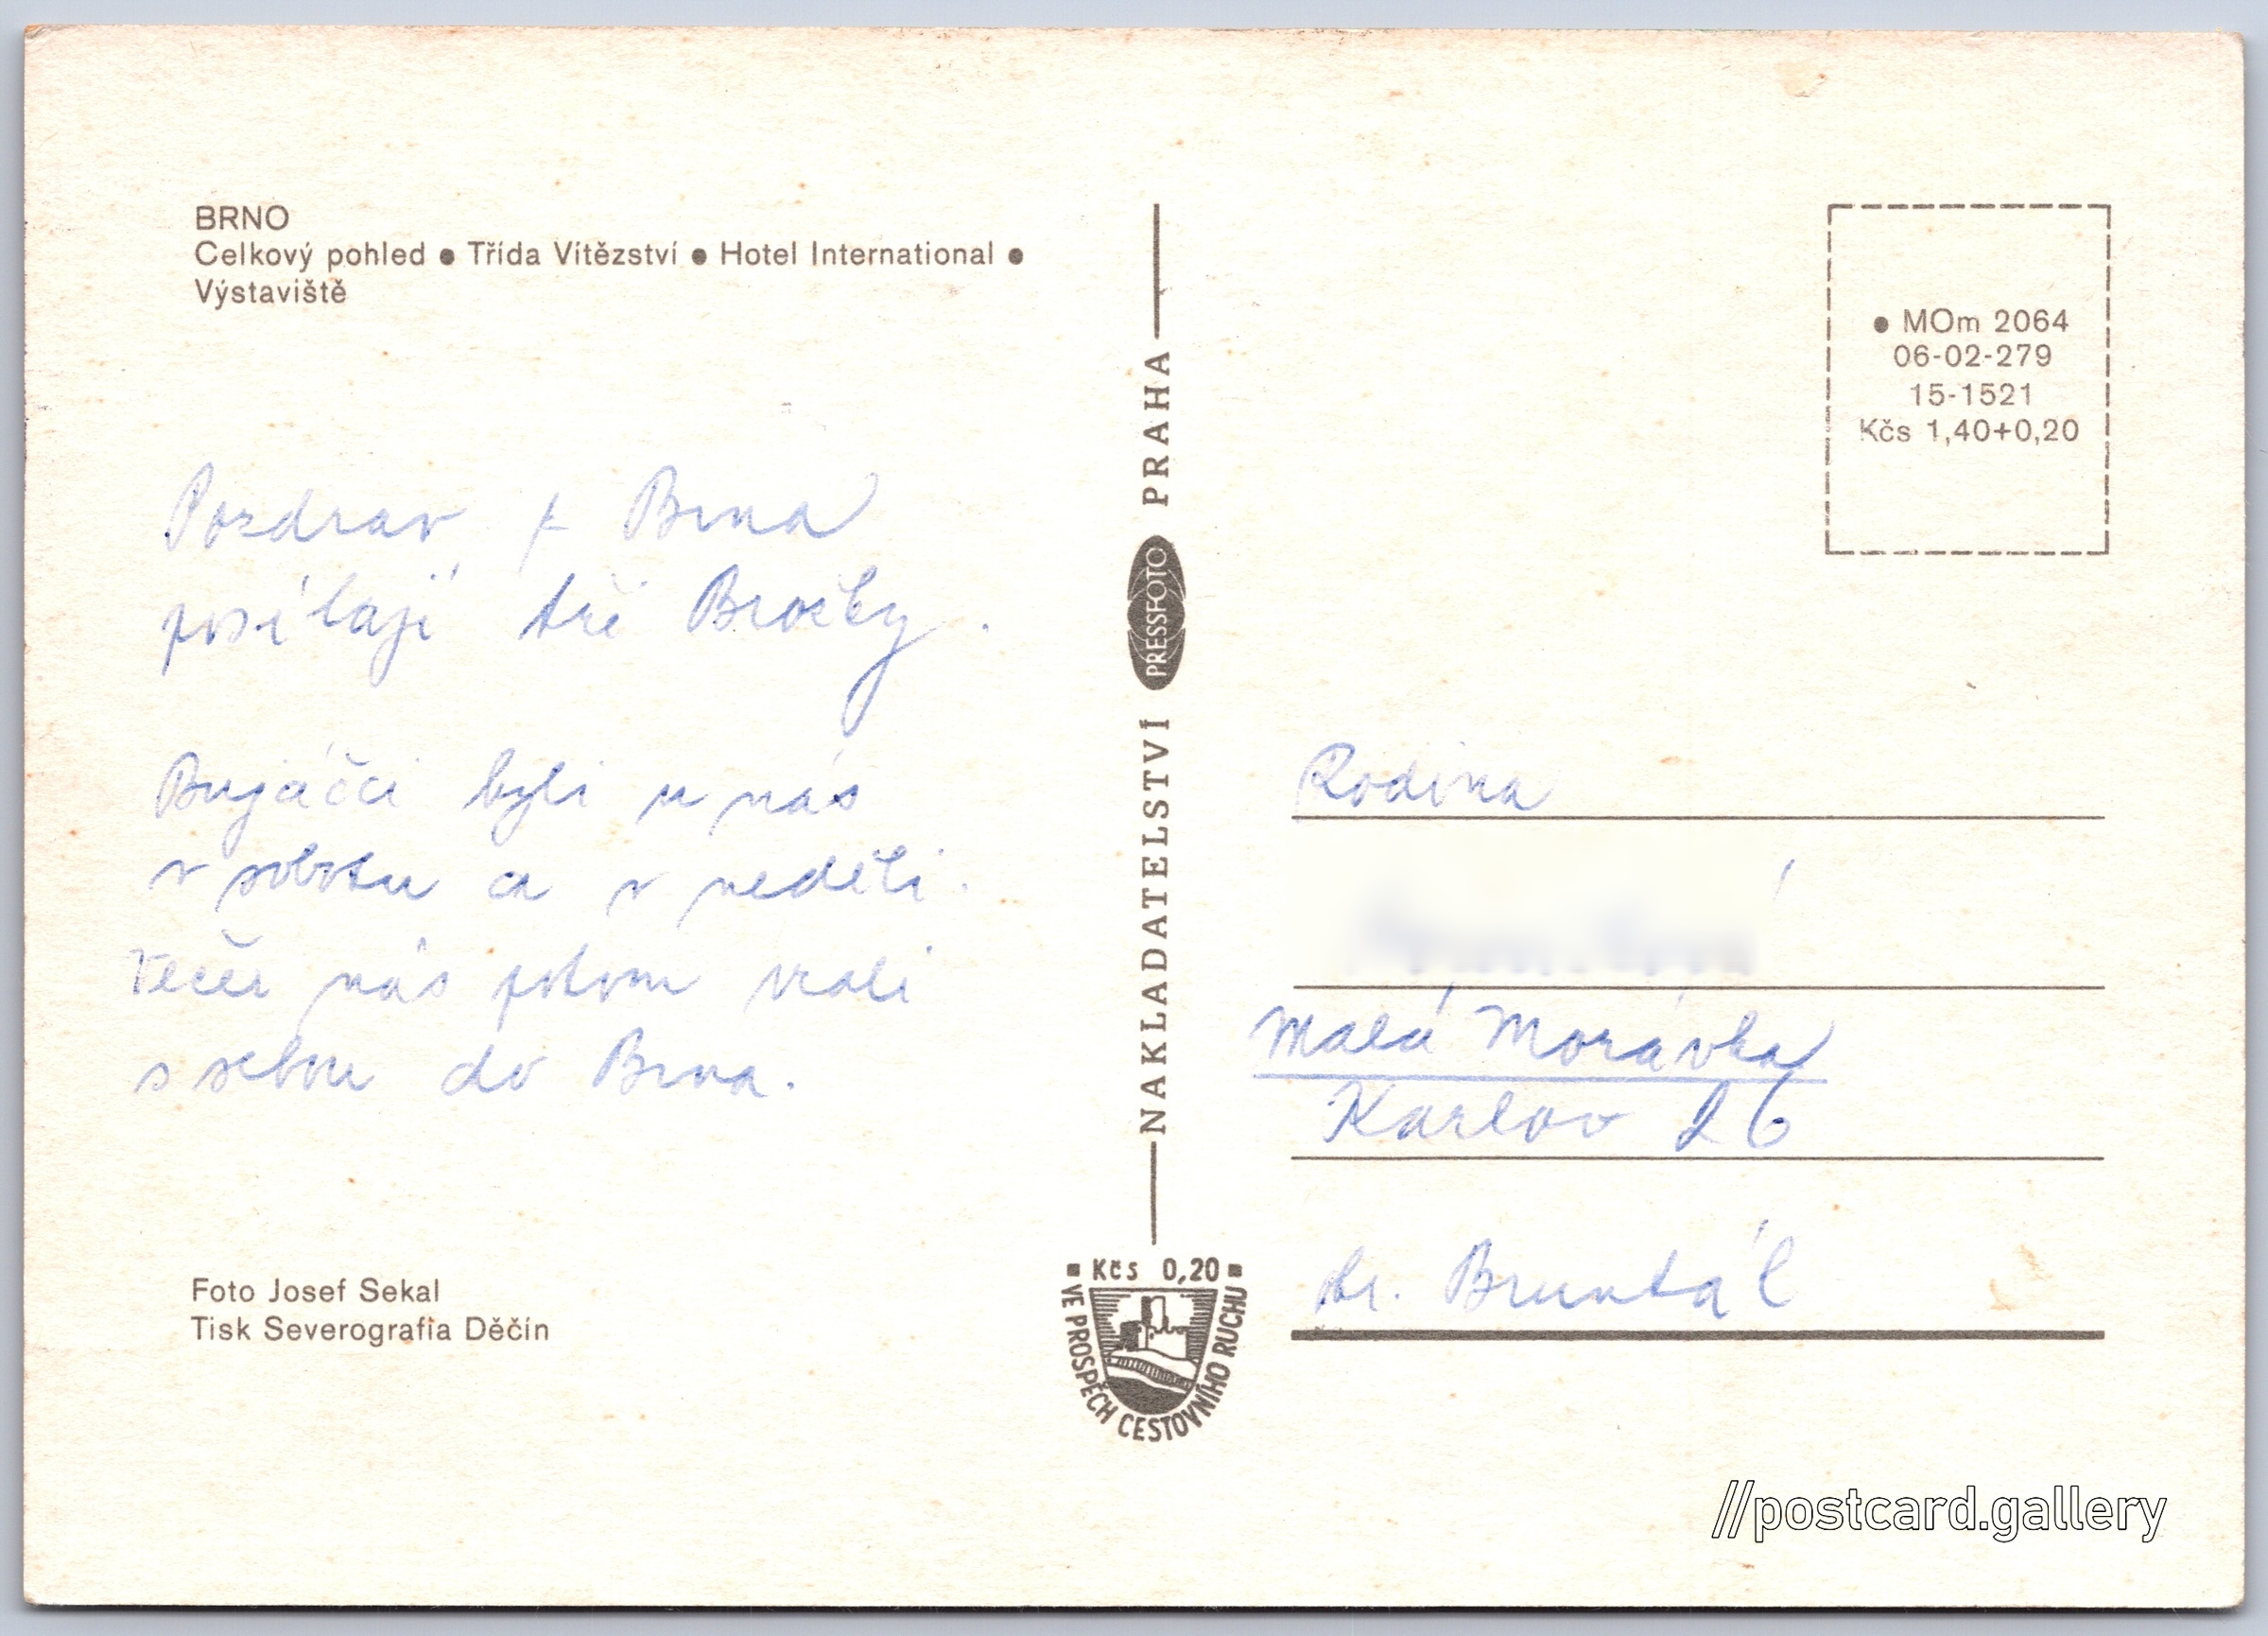 BRNO
Celkový pohled ● Třída Vítězství ● Hotel International ●
Výstaviště
Pozdrav z Brna
posílají tři Brožky.
Bujáčci byli u nás
v sobotu a v neděli.
Večer nás potom vzali
s sebou do Brna.
Foto Josef Sekal
Tisk Severografia Děčín
NAKLADATELSTVÍ PRESSFOTO PRAHA
Kčs 0,20
VE PROSPĚCH CESTOVNÍHO RUCHU
● MOm 2064
06-02-279
15-1521
Kčs 1,40+0,20
Rodina
Malá Morávka
Karlov 26
okr. Bruntál
//postcard.gallery